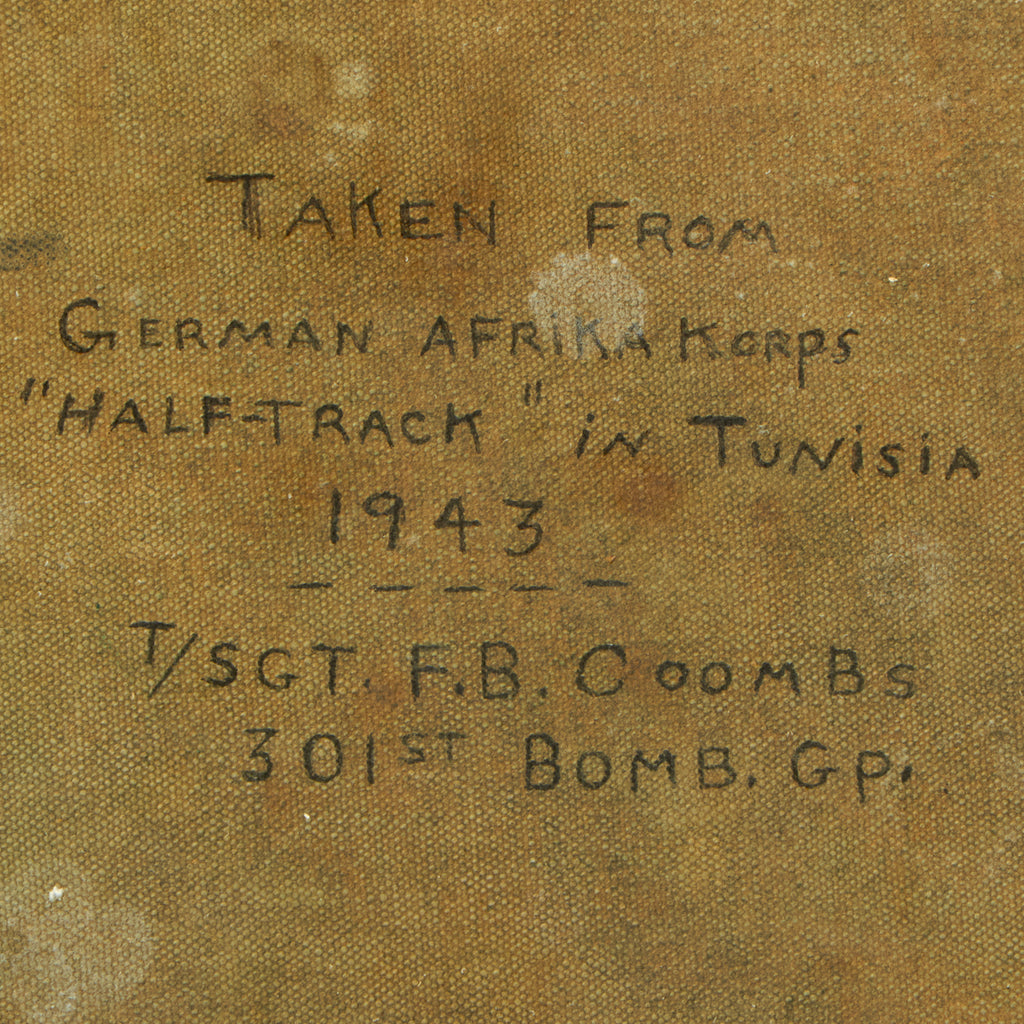 TAKEN FROM
GERMAN AFRiKA KORPS
"HALF-TRACK" iN TUNiSiA
1943
- - - - -
T/SGT. F.B. COOMBS
301ST BOMB. GP.